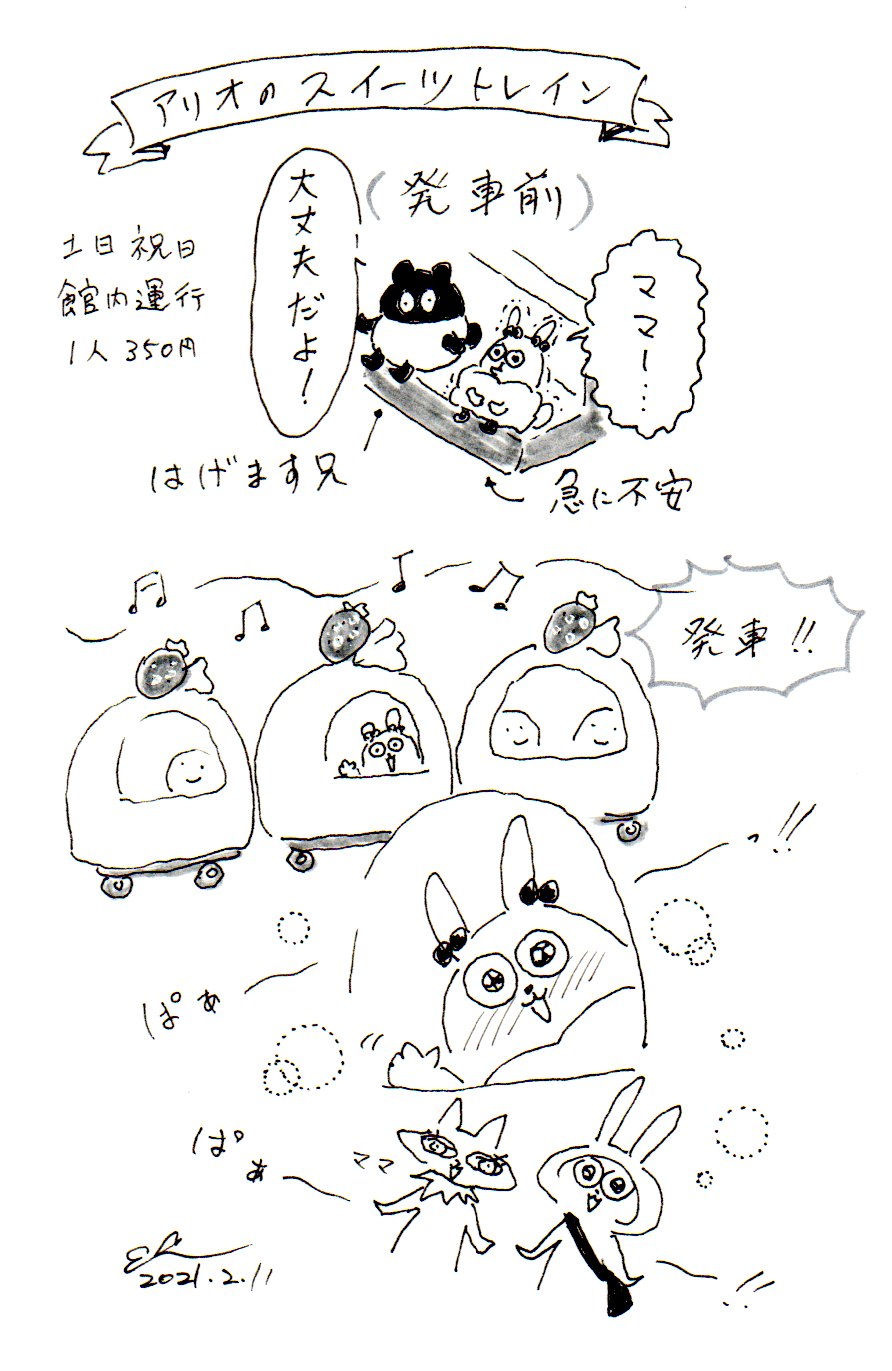 アリオのスイーツトレイン
(発車前)
土日祝日
館内運行
1人 350円
大丈夫だよ!
ママー…
はげます兄
急に不安
発車!!
っ!!
ぱあ
ぱぁ
ママ
!!
2021.2.11